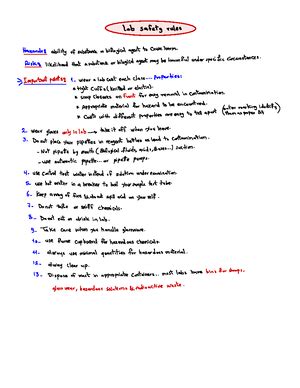 Lab Safety rules
Hazards: ability of substance or biological agent to cause harm.
Risks: likelihood that a substance or biological agent may be harmful under specific circumstances.
Important points: 1. wear a lab coat each class... properties:
* tight Cuffs (knitted or elastic).
* snap closures on front for easy removal in contamination.
* Appropriate material for hazard to be encountered.
* Coats with different properties are easy to tell apart
2. wear gloves only in lab → take it off when you leave.
3. Do not place your pipettes in reagent bottles as lead to contamination.
- Not pipette by mouth (Biological fluids, acids, Bases...) suction.
- use automatic pipette... or pipette pumps.
4. use
5. use hot water in a beaker to boil your sample test tube.
6. Keep array of fire
7. Do not taste or sniff chemicals.
8. Do not eat or drink in lab.
9. Take care when you handle glassware.
10. use fume Cupboard for hazardous chemicals.
11. always use minimal quantities for hazardous material.
12. always clear up.
13. Dispose of waste in appropriate containers... most labs have bins for sharps,
glassware, hazardous solutions & radioactive waste.